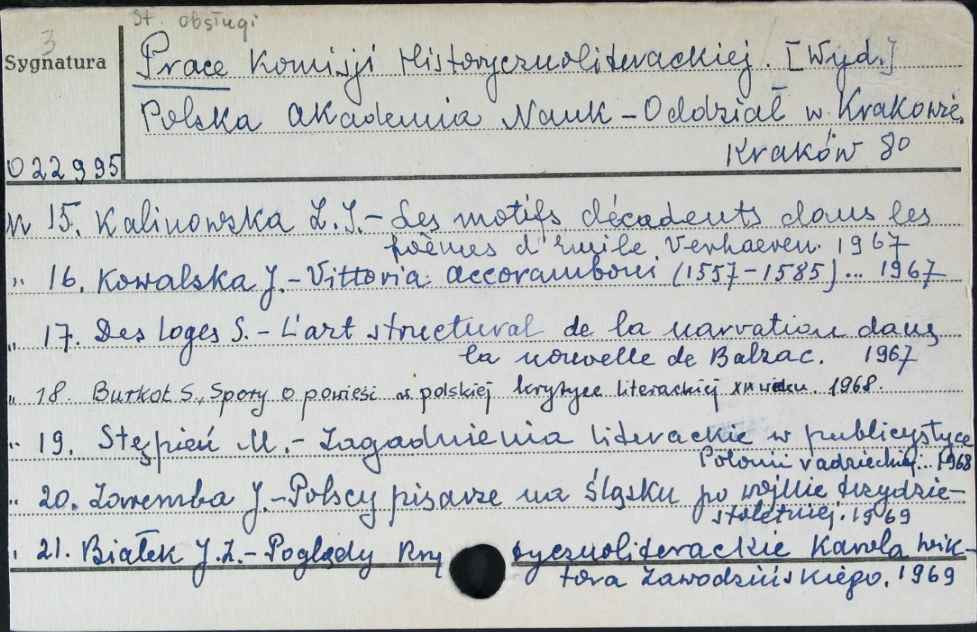 St. obsługi
3
Sygnatura
Prace Komisji Historycznoliterackiej. [Wyd.]
Polska Akademia Nauk – Oddział w Krakowie.
022995
Kraków 80
N 15. Kalinowska Z.I. – Les motifs décadents dans les
poèmes d'Emile Verhaeren. 1967
" 16. Kowalska J. – Vittoria Accoramboni (1557–1585)... 1967
" 17. Des Loges S. – L'art structural de la narration dans
la nouvelle de Balzac. 1967
" 18. Burkot S., Spory o powieść w polskiej krytyce literackiej XIX wieku. 1968.
" 19. Stępień M. – Zagadnienia literackie w publicystyce
Polonii radzieckiej... 1968
" 20. Zaremba J. – Polscy pisarze na Śląsku po wojnie trzydzie–
stoletniej. 1969
" 21. Białek J.Z. – Poglądy kry tycznoliterackie Karola Wik–
tora Zawodzińskiego. 1969